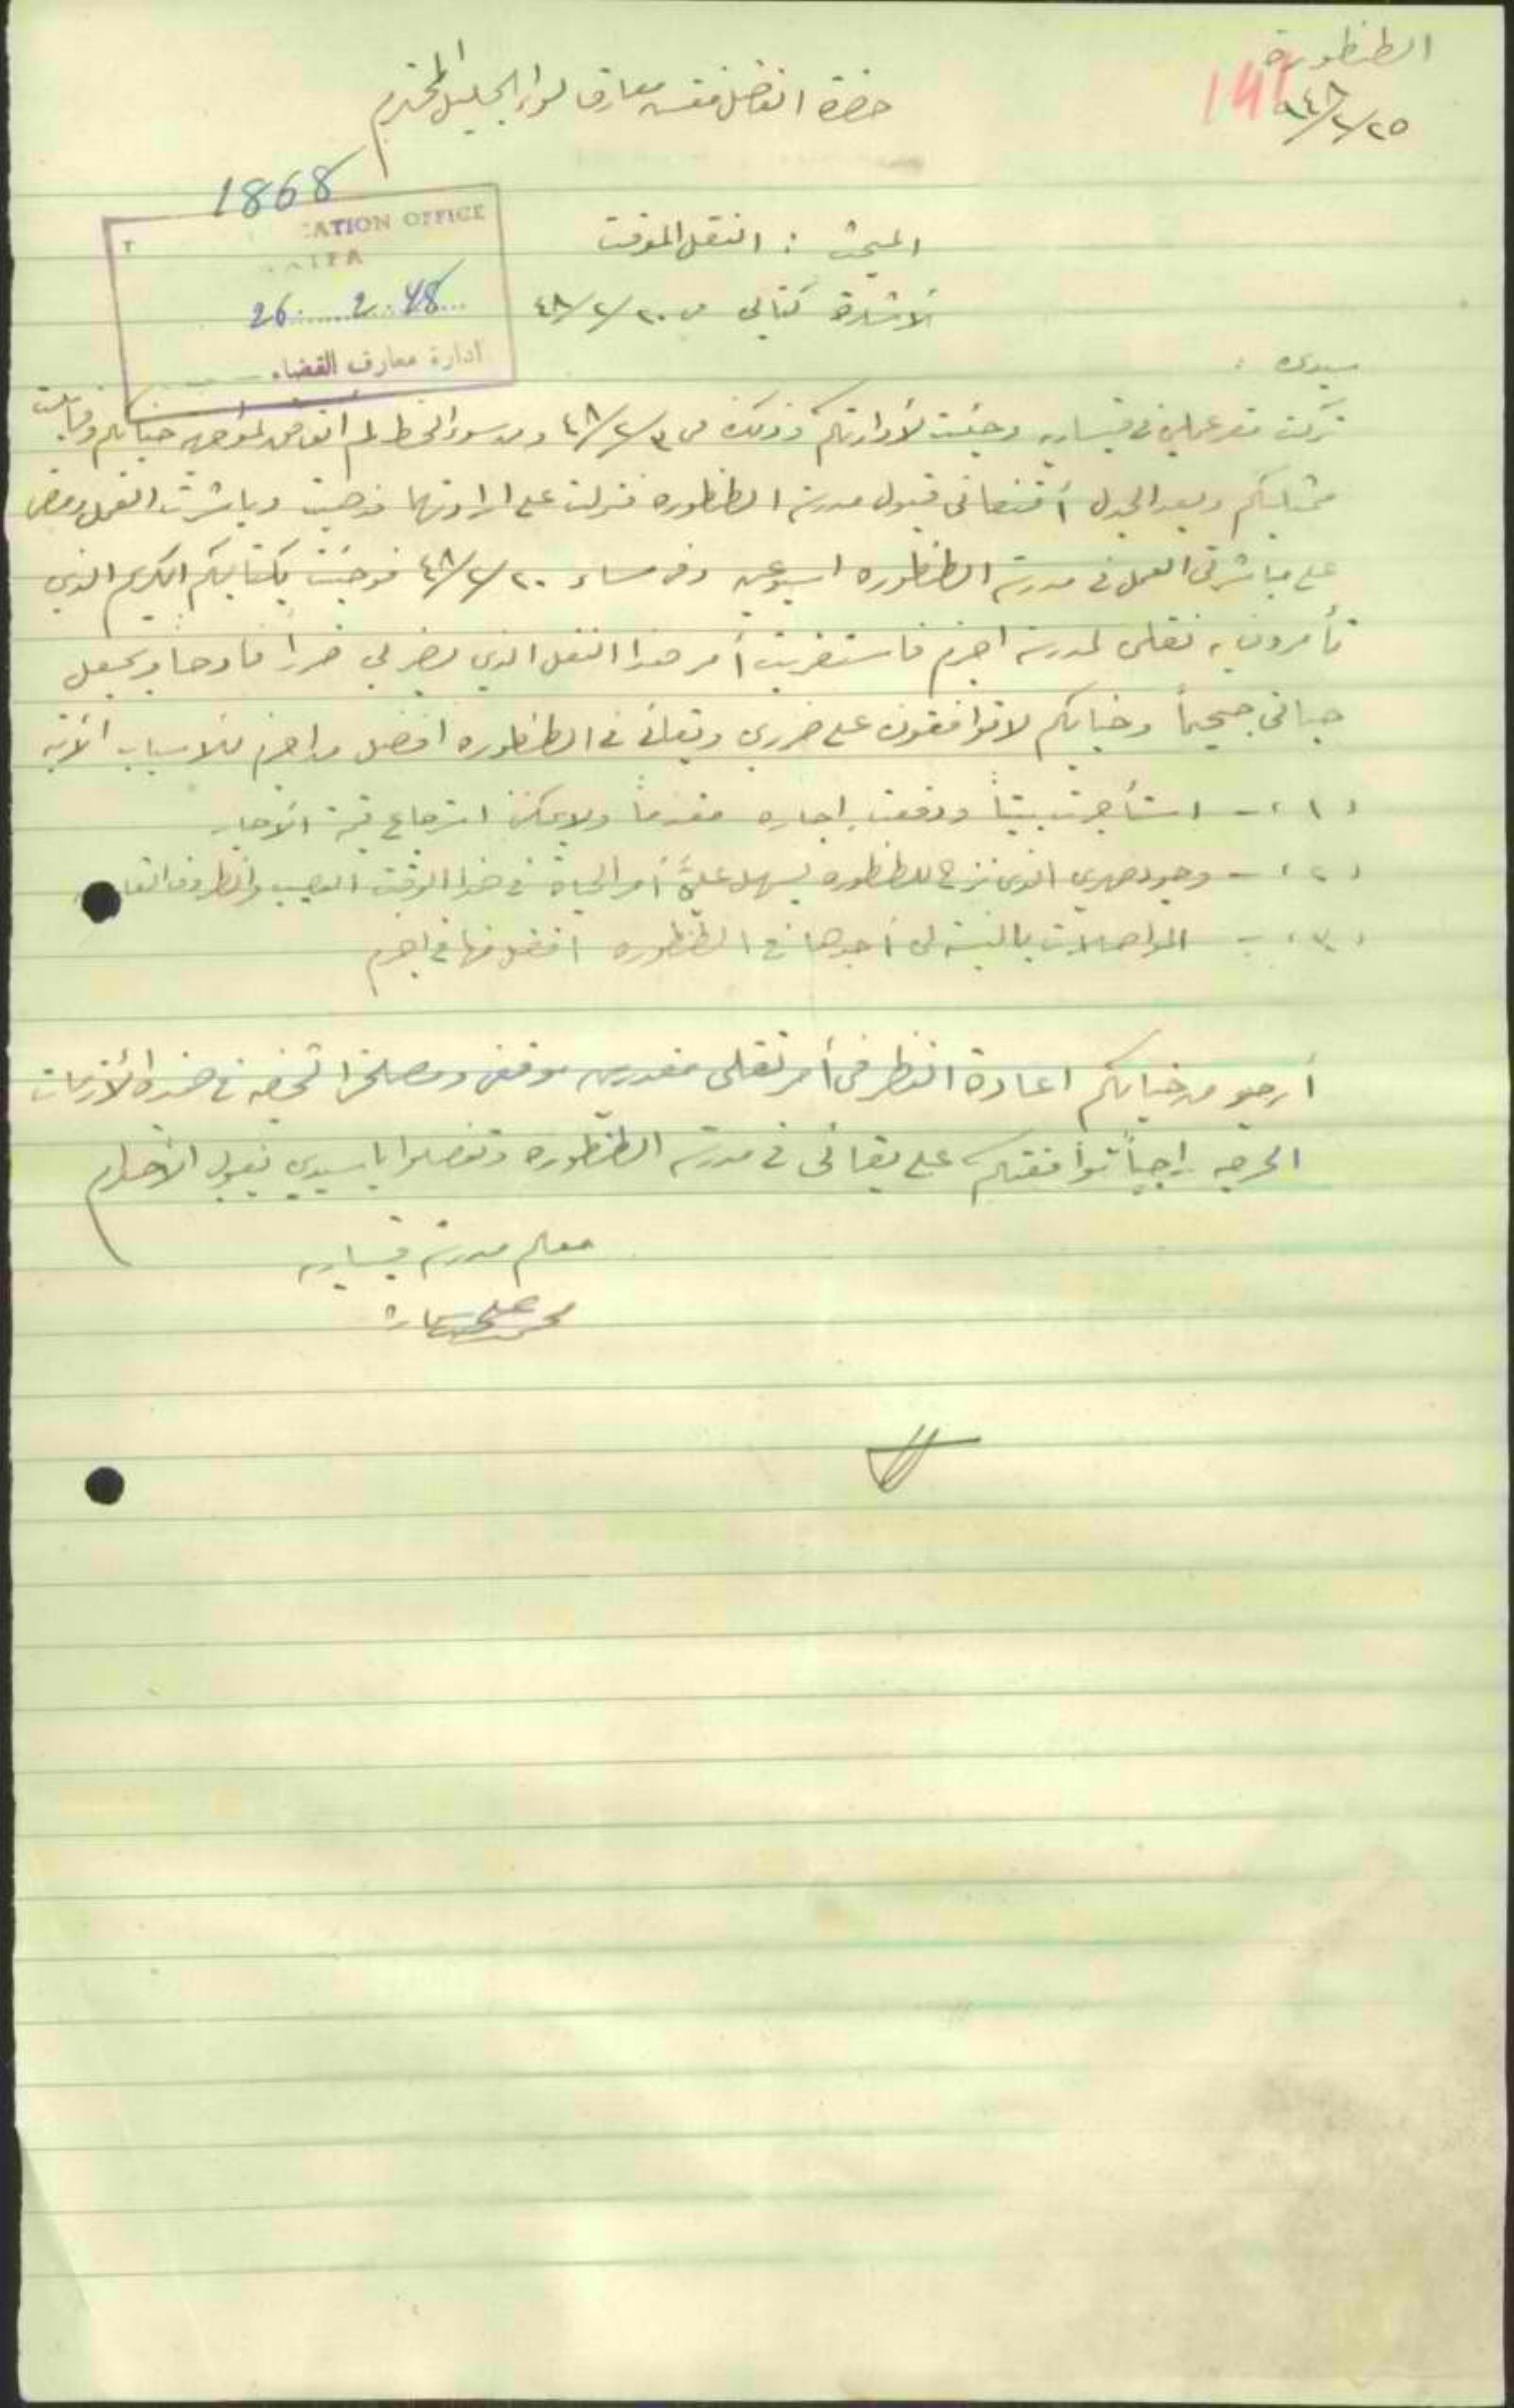 الطنطورة
٢٥/٢/٩٤٨
141
حضرة الفاضل مفتش معارف لواء الجليل المحترم
1868
CATION OFFICE
26 2 48
ادارة معارف القضاء
المبحث : النقل الموقت
الاشارة كتابي في ٢٠/٢/٤٨
سيدي :
تركت مقر عملي في قيساريه وجئت لادارتكم وذلك في ٣/٢/٤٨ ومن سوء الحظ لم أتوفق لمواجهة جنابكم وقابلت
ممثليكم وبعد الجدل أقنعاني قبول مدرسة الطنطوره فنزلت على ارادتهما فذهبت وباشرت العمل ومضى
على مباشرتي العمل في مدرسة الطنطوره اسبوعين وفي مساء ٢٠/٢/٤٨ فوجئت بكتابكم الكريم الذي
تأمرون به نقلي لمدرسة اجزم فاستغربت أمر هذا النقل الذي يضر بي ضررا فادحا ويجعل
حياتي جحيماً وجنابكم لا توافقون على ضرري وبقائي في الطنطوره افضل من اجزم للاسباب الآتية
(١) - استأجرت بيتاً ودفعت اجاره مقدماً ولا يمكن استرجاع قيمة الأجار
(٢) - وجود صهري الذي نزح للطنطوره يسهل عليَّ أمر الحياة في هذا الوقت العصيب والظروف
(٣) - المواصلات بالنسبة لي أجدها في الطنطوره افضل منها في اجزم
أرجو من جنابكم اعادة النظر في أمر نقلي مقدرين موقفي ومصلحتي الشخصيه في هذه الأزمات
الحرجه راجياً توافقتكم على بقائي في مدرسة الطنطوره وتفضلوا يا سيدي بقبول الاحترام
معلم مدرسة قيساريه
محمد علي